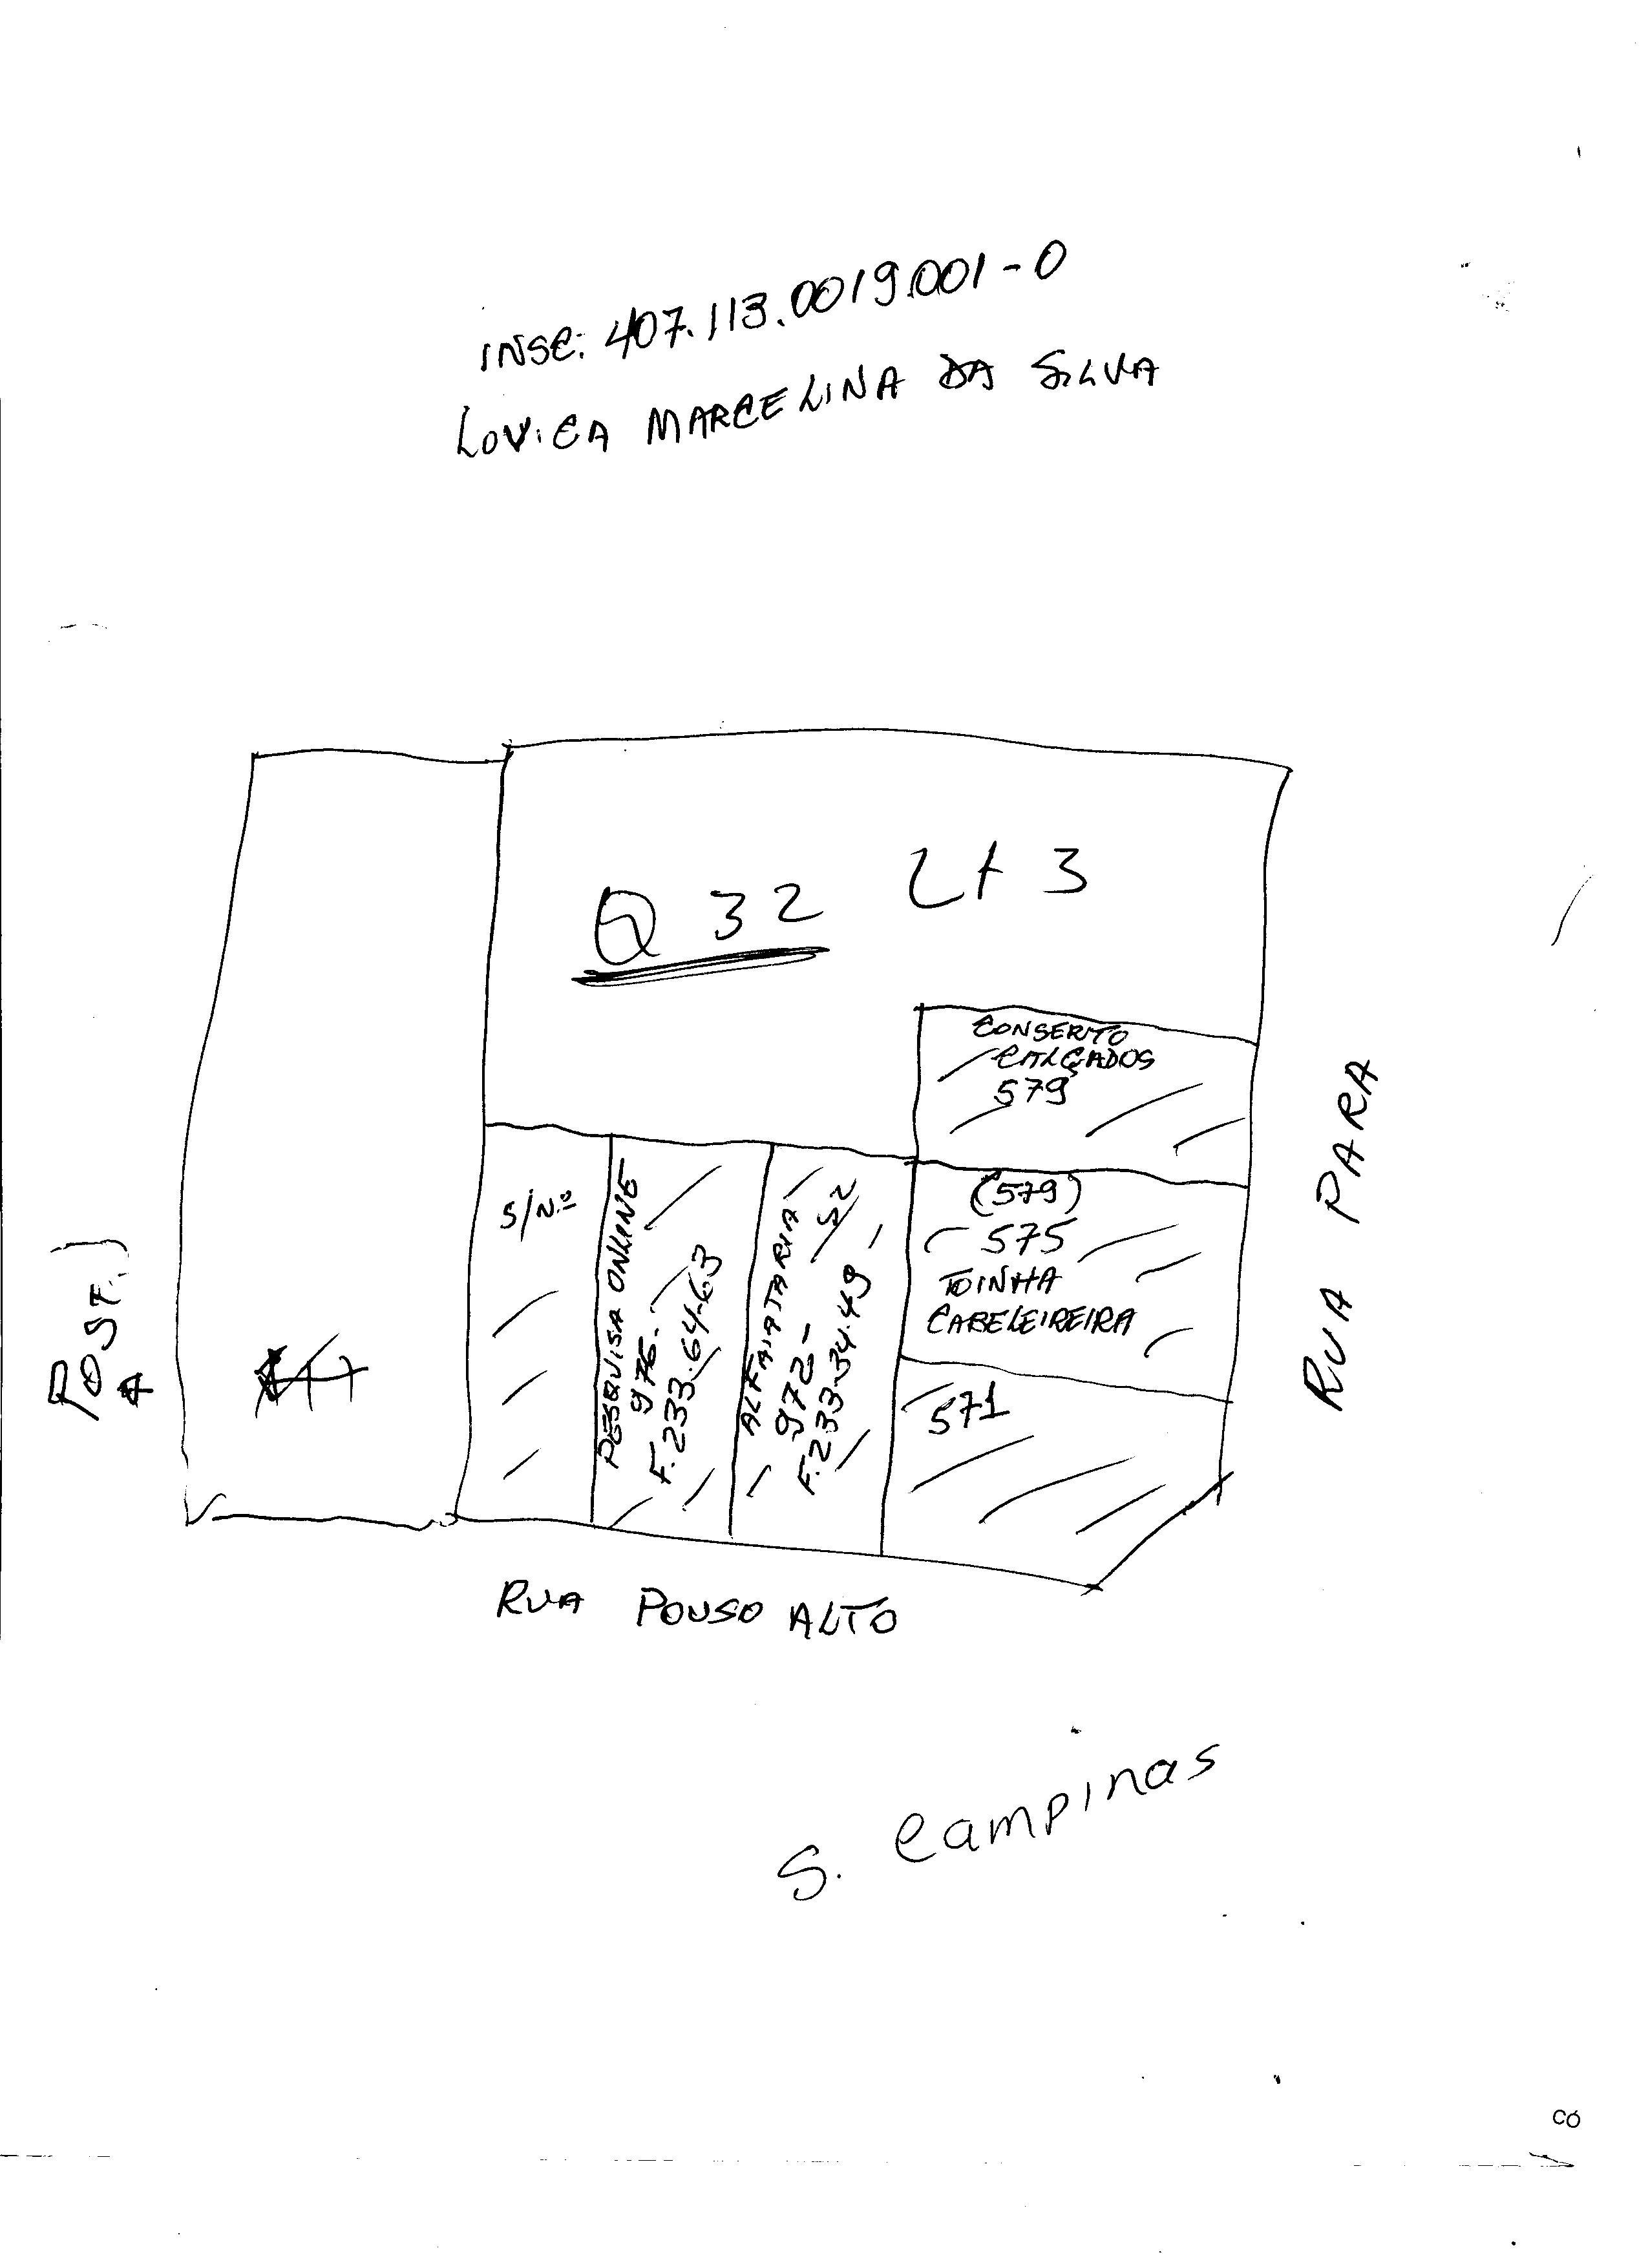 INSC: 407.113.0019.001-0
LOVICA MARCELINA DA SILVA
Q 32 Lt 3
CONSERTO
CALÇADOS
579
(579)
575
TOINHA
CABELEIREIRA
571
S/Nº
PESQUISA ONLINE
976-
F.233.64.63
ALFAIATARIA
972-
F.233.34.49
RUA PARA
RUA POUSO ALTO
S. Campinas
CÓ